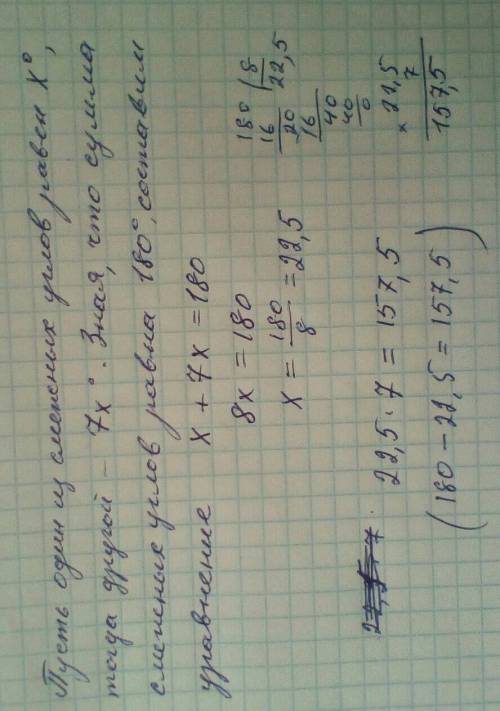 Пусть один из смежных углов равен x°,
тогда другой — 7x°. Зная, что сумма
смежных углов равна 180°, составим
уравнение x + 7x = 180
8x = 180
x = 180/8 = 22,5
180 | 8
16 22,5
20
16
40
40
0
22,5 · 7 = 157,5
(180 - 22,5 = 157,5)
× 22,5
7
157,5